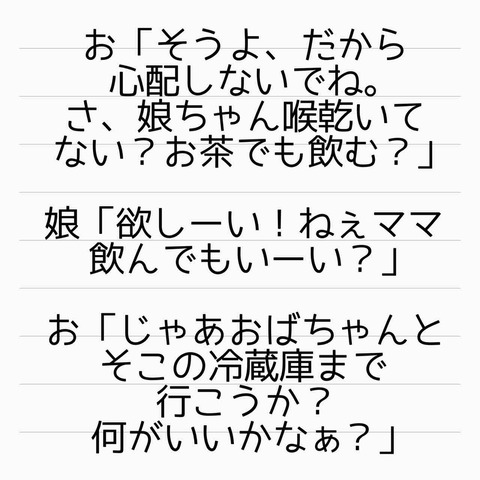 お「そうよ、だから
心配しないでね。
さ、娘ちゃん喉乾いて
ない？お茶でも飲む？」
娘「欲しーい！ねぇママ
飲んでもいーい？」
お「じゃあおばちゃんと
そこの冷蔵庫まで
行こうか？
何がいいかなぁ？」